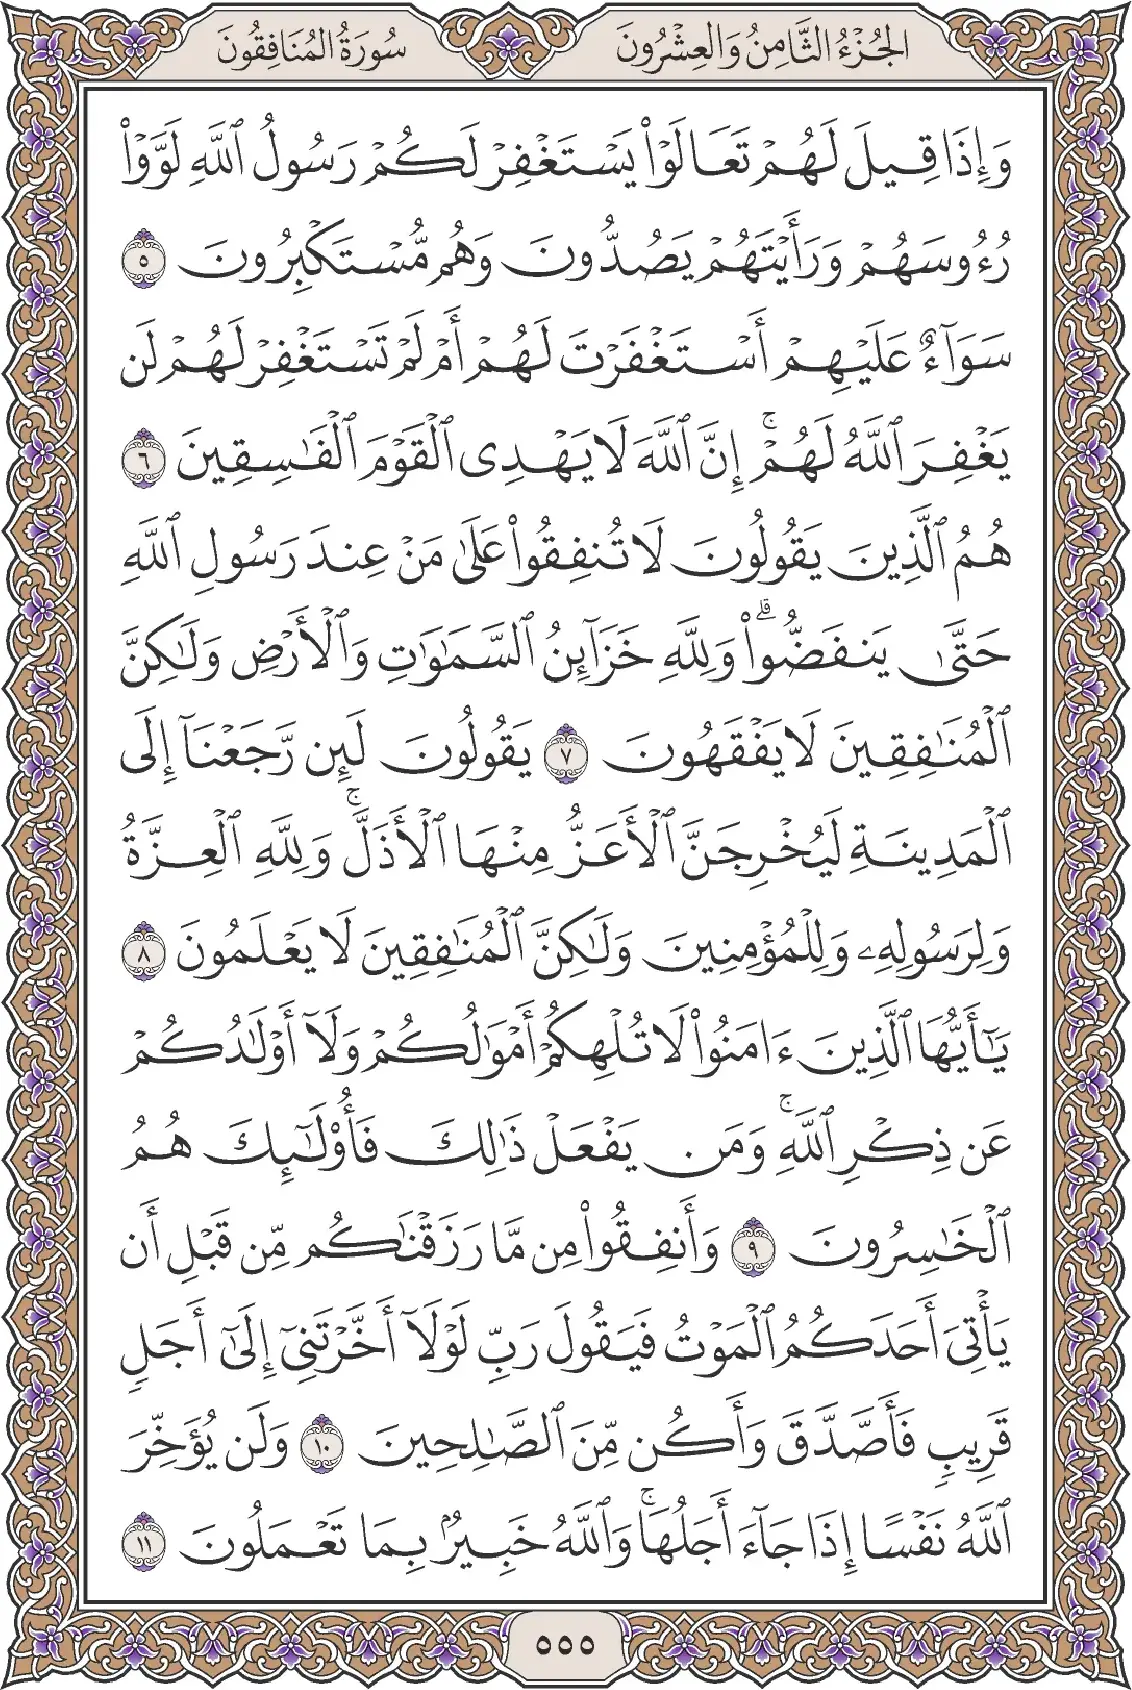 الجُزْءُ الثَّامِنُ وَالعِشْرُونَ
سُورَةُ المُنَافِقُونَ
وَإِذَا قِيلَ لَهُمْ تَعَالَوْا۟ يَسْتَغْفِرْ لَكُمْ رَسُولُ ٱللَّهِ لَوَّوْا۟
رُءُوسَهُمْ وَرَأَيْتَهُمْ يَصُدُّونَ وَهُم مُّسْتَكْبِرُونَ ٥
سَوَآءٌ عَلَيْهِمْ أَسْتَغْفَرْتَ لَهُمْ أَمْ لَمْ تَسْتَغْفِرْ لَهُمْ لَن
يَغْفِرَ ٱللَّهُ لَهُمْ ۚ إِنَّ ٱللَّهَ لَا يَهْدِى ٱلْقَوْمَ ٱلْفَـٰسِقِينَ ٦
هُمُ ٱلَّذِينَ يَقُولُونَ لَا تُنفِقُوا۟ عَلَىٰ مَنْ عِندَ رَسُولِ ٱللَّهِ
حَتَّىٰ يَنفَضُّوا۟ ۗ وَلِلَّهِ خَزَآئِنُ ٱلسَّمَـٰوَٰتِ وَٱلْأَرْضِ وَلَـٰكِنَّ
ٱلْمُنَـٰفِقِينَ لَا يَفْقَهُونَ ٧ يَقُولُونَ لَئِن رَّجَعْنَآ إِلَى
ٱلْمَدِينَةِ لَيُخْرِجَنَّ ٱلْأَعَزُّ مِنْهَا ٱلْأَذَلَّ ۚ وَلِلَّهِ ٱلْعِزَّةُ
وَلِرَسُولِهِۦ وَلِلْمُؤْمِنِينَ وَلَـٰكِنَّ ٱلْمُنَـٰفِقِينَ لَا يَعْلَمُونَ ٨
يَـٰٓأَيُّهَا ٱلَّذِينَ ءَامَنُوا۟ لَا تُلْهِكُمْ أَمْوَٰلُكُمْ وَلَآ أَوْلَـٰدُكُمْ
عَن ذِكْرِ ٱللَّهِ ۚ وَمَن يَفْعَلْ ذَٰلِكَ فَأُو۟لَـٰٓئِكَ هُمُ
ٱلْخَـٰسِرُونَ ٩ وَأَنفِقُوا۟ مِن مَّا رَزَقْنَـٰكُم مِّن قَبْلِ أَن
يَأْتِىَ أَحَدَكُمُ ٱلْمَوْتُ فَيَقُولَ رَبِّ لَوْلَآ أَخَّرْتَنِىٓ إِلَىٰٓ أَجَلٍ
قَرِيبٍ فَأَصَّدَّقَ وَأَكُن مِّنَ ٱلصَّـٰلِحِينَ ١٠ وَلَن يُؤَخِّرَ
ٱللَّهُ نَفْسًا إِذَا جَآءَ أَجَلُهَا ۚ وَٱللَّهُ خَبِيرٌۢ بِمَا تَعْمَلُونَ ١١
٥٥٥